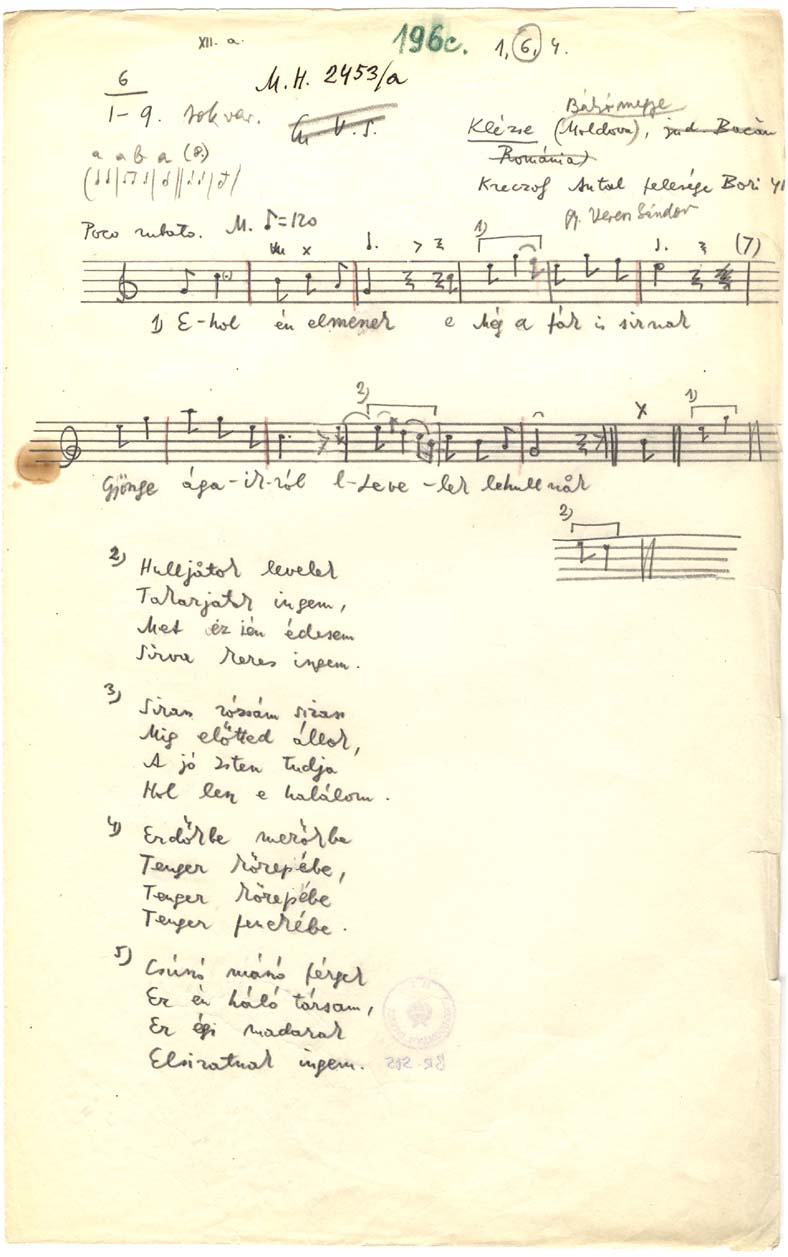 XII. a. 196c. 1, 6, 4.
6 M.H. 2453/a
1-9. sokvar. Bákómegye
Klézse (Moldova), jud. Bacău
a a b a (8) Románia)
Kreczof Antal felesége Bori 41
gy. Veress Sándor
Poco rubato. M. ♪=120
1) (7)
1) E-hol én elmenek e Még a fák is sirnak
2) 1)
Gyönge ága-ik-ról l-Leve-lek lehullnåk
2)
2) Hulljåtok levelek
Takarjatk ingem,
Met éz ién édesem
Sirva keres ingem.
3) Siran rózsám siran
Mig előtted állok,
A jó Isten tudja
Hol lesz e halálom.
4) Erdőkbe mezőkbe
Tenger közepébe,
Tenger közepébe
Tenger fenekébe.
5) Csúnó mánó férgek
Ez én háló társam,
Ez égi madarak
Elsiratnak ingem.